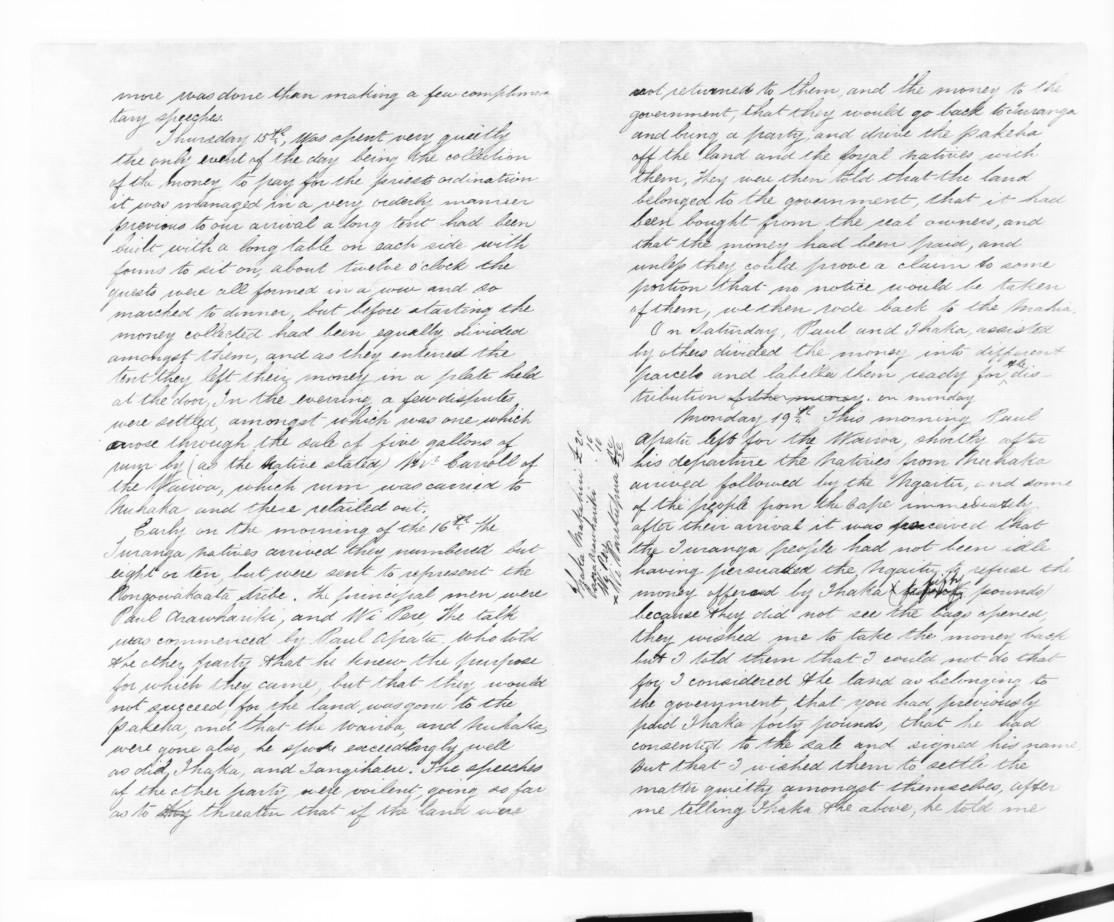 more was done than making a few complimen
tary speeches.
Thursday 15th, Was spent very quietly
the only event of the day being the collection
of the money to pay for the priests ordination
it was managed in a very orderly manner
previous to our arrival a long tent had been
built with a long table on each side with
forms to sit on, about twelve o'clock the
guests were all formed in a row and so
marched to dinner, but before starting the
money collected had been equally divided
amongst them, and as they entered the
tent they left their money in a plate held
at the door, In the evening a few disputes
were settled, amongst which was one which
arose through the sale of five gallons of
rum by (as the Native stated) Mr Carroll of
the Wairoa, which rum was carried to
Nuhaka and there retailed out.
Early on the morning of the 16th the
Turanga natives arrived they numbered but
eight or ten, but were sent to represent the
Rongowakaata tribe. the principal men were
Paul Arawhariki, and Wi Pere, The talk
was commenced by Paul Apatu, who told
the other party that he knew the purpose
for which they came, but that they would
not succeed, for the land was gone to the
pakeha, and that the Wairoa, and Nuhaka,
were gone also, he spoke exceedingly well
as did, Ihaka, and Tangihaere. The speeches
of the other party were voilent, going so far
as to they threaten that if the land were
Ihaka
£
not returned to them, and the money to the
government, that they would go back to Turanga
and bring a party, and drive the pakeha
off the land and the loyal natives with
them, They were then told that the land
belonged to the government, that it had
been bought from the real owners, and
that the money had been paid, and
unless they could prove a claim to some
portion that no notice would be taken
of them, we then rode back to the Mahia.
On Saturday, Paul and Ihaka, assisted
by others divided the money into different
parcels and labelled them ready for the dis-
tribution of the money. on monday
Monday 19th. This morning Paul
Apatu left for the Wairoa, shortly after
his departure the natives from Nuhaka
arrived followed by the Ngaitu, and some
of the people from the Cape immediately
after their arrival it was perceived that
the Turanga people had not been idle
having persuaded the Ngaitu to refuse the
money offered by Ihaka (fifty pounds)
because they did not see the bags opened,
they wished me to take the money back
but I told them that I could not do that
for I considered the land as belonging to
the government, that you had previously
paid Ihaka forty pounds, that he had
consented to the sale and signed his name,
But that I wished them to settle the
matter quietly amongst themselves, after
me telling Ihaka the above, he told me